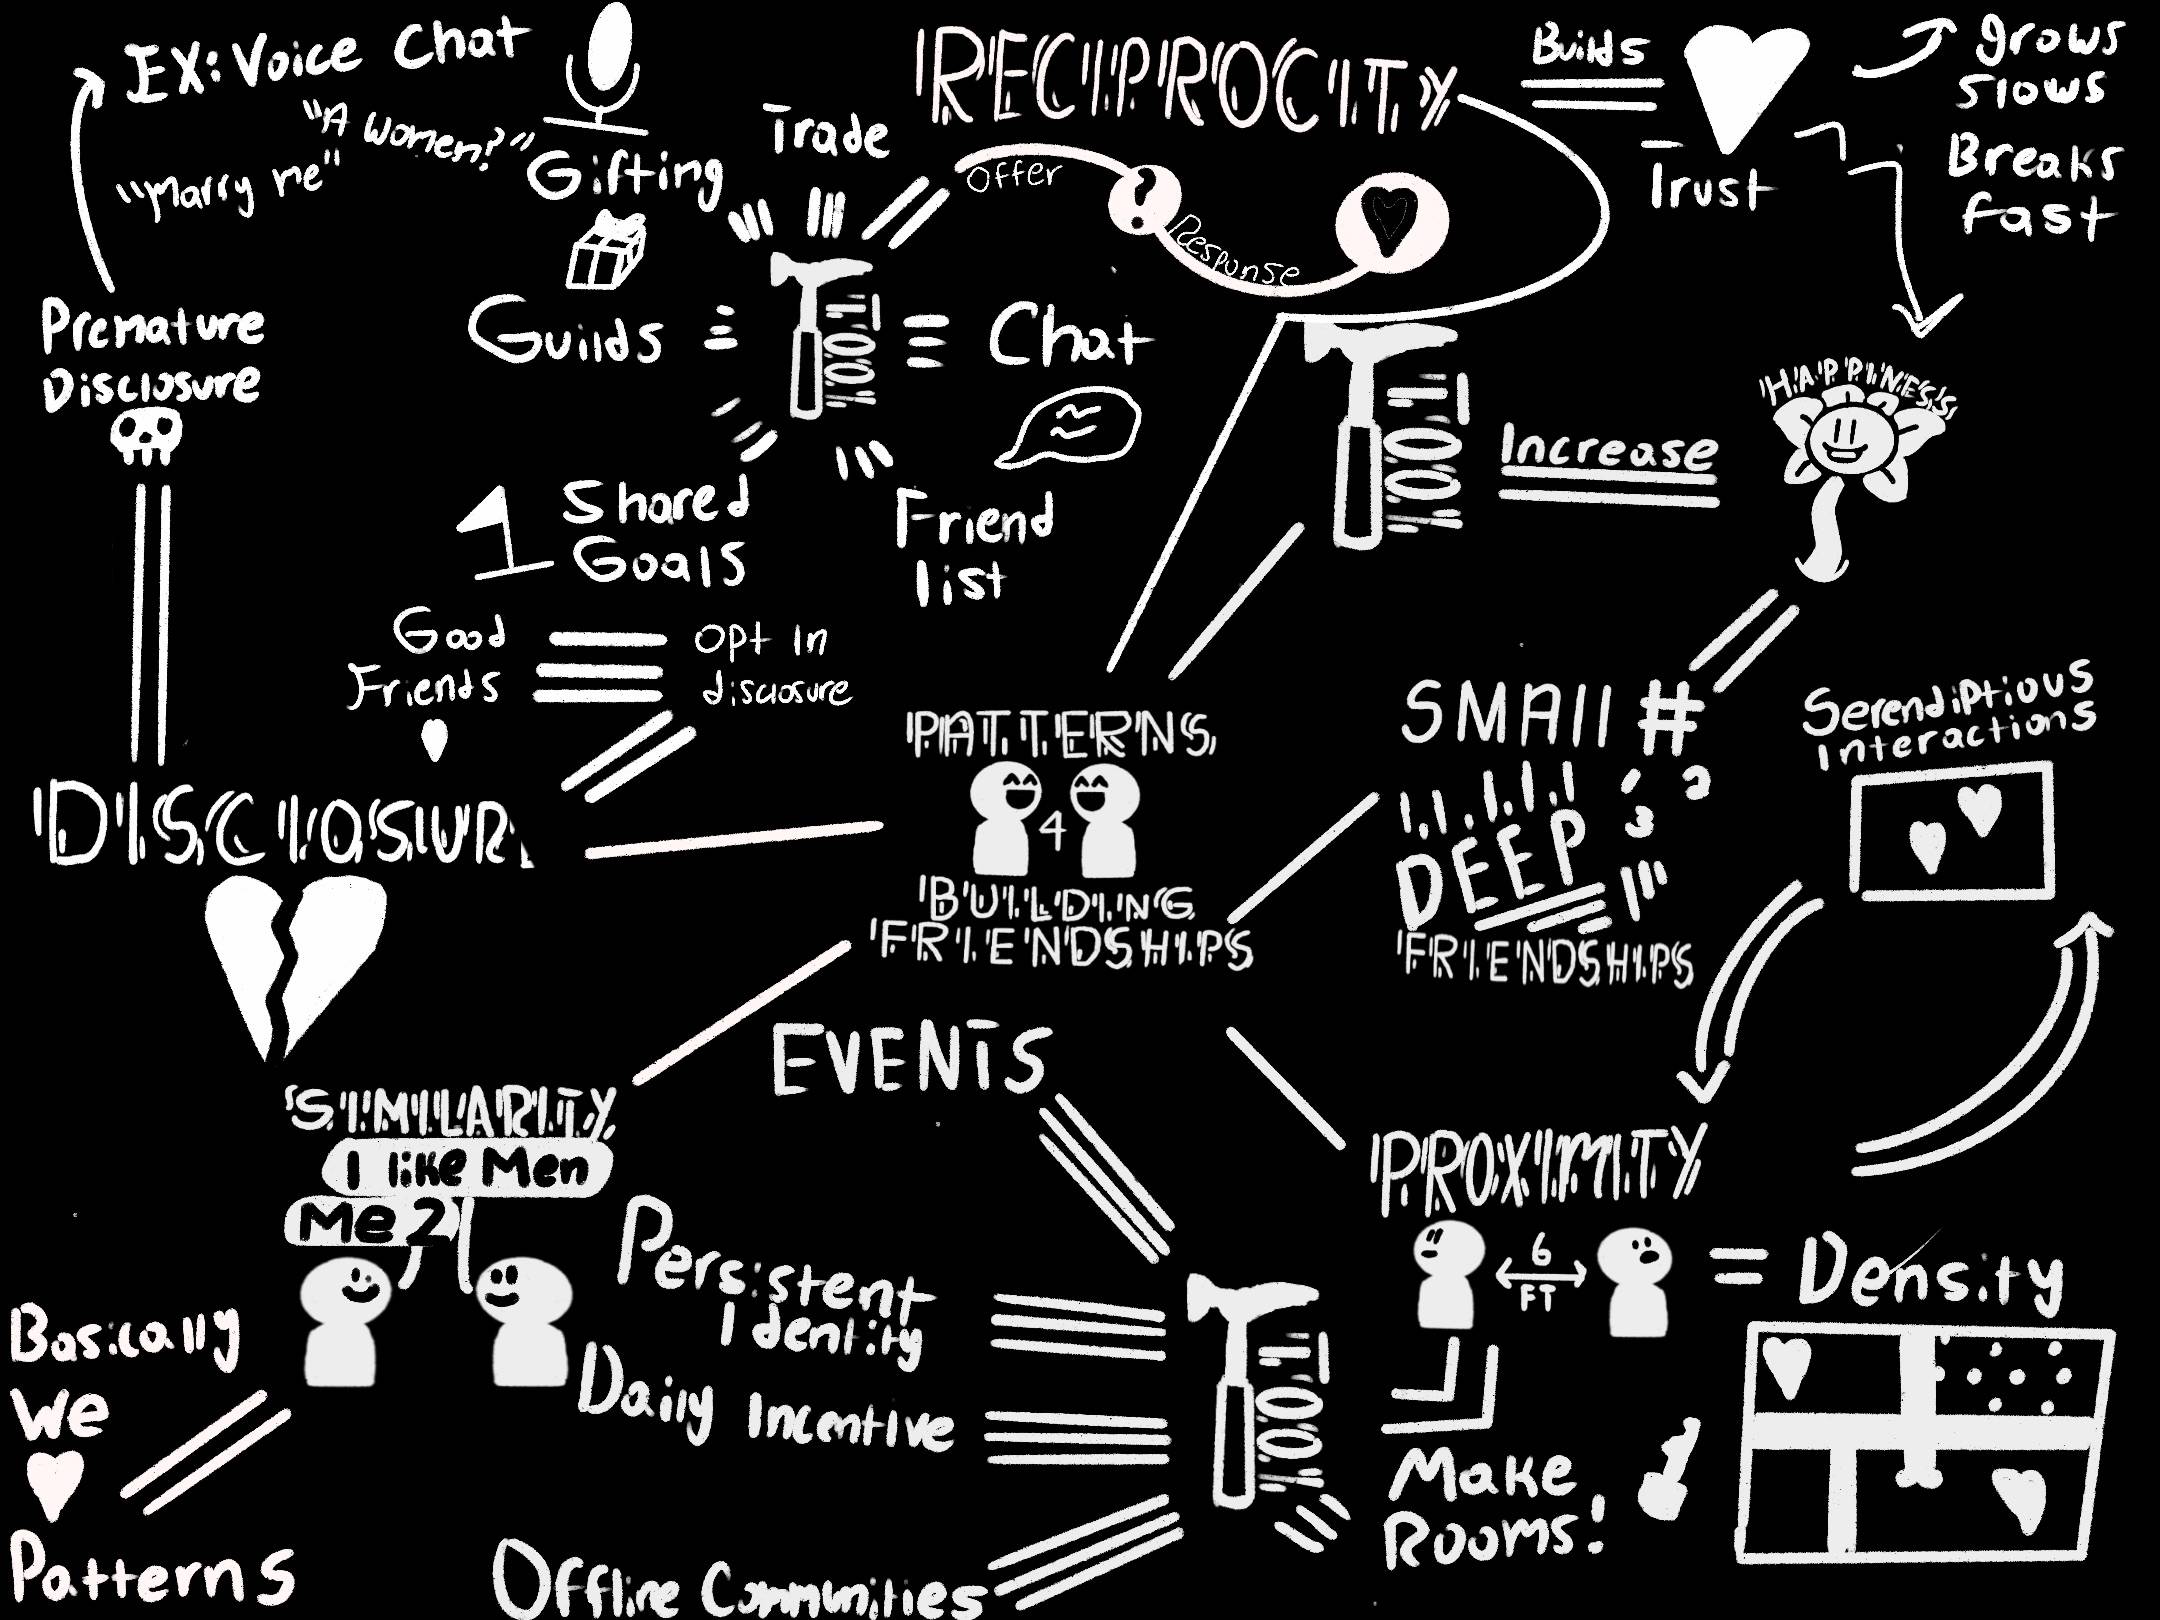 EX: Voice Chat
"A women?"
"Marry me"
Premature
Disclosure
Gifting
Trade
Guilds
Tools
Chat
Shared
Goals
Friend
list
Good
Friends
Opt in
disclosure
RECIPROCITY
Offer
?
Response
Builds
Trust
grows
slows
Breaks
fast
Tools
Increase
HAPPINESS
SMAll #
DEEP
FRIENDSHIPS
Serendiptious
interactions
PATTERNS
4
BUILDING
FRIENDSHIPS
DISClOSUR
SIMILARITY
I like Men
Me 2
Basically
We
Patterns
EVENTS
Persistent
Identity
Daily Incentive
Offline Communities
Tools
PROXIMITY
6
FT
= Density
Make
Rooms!